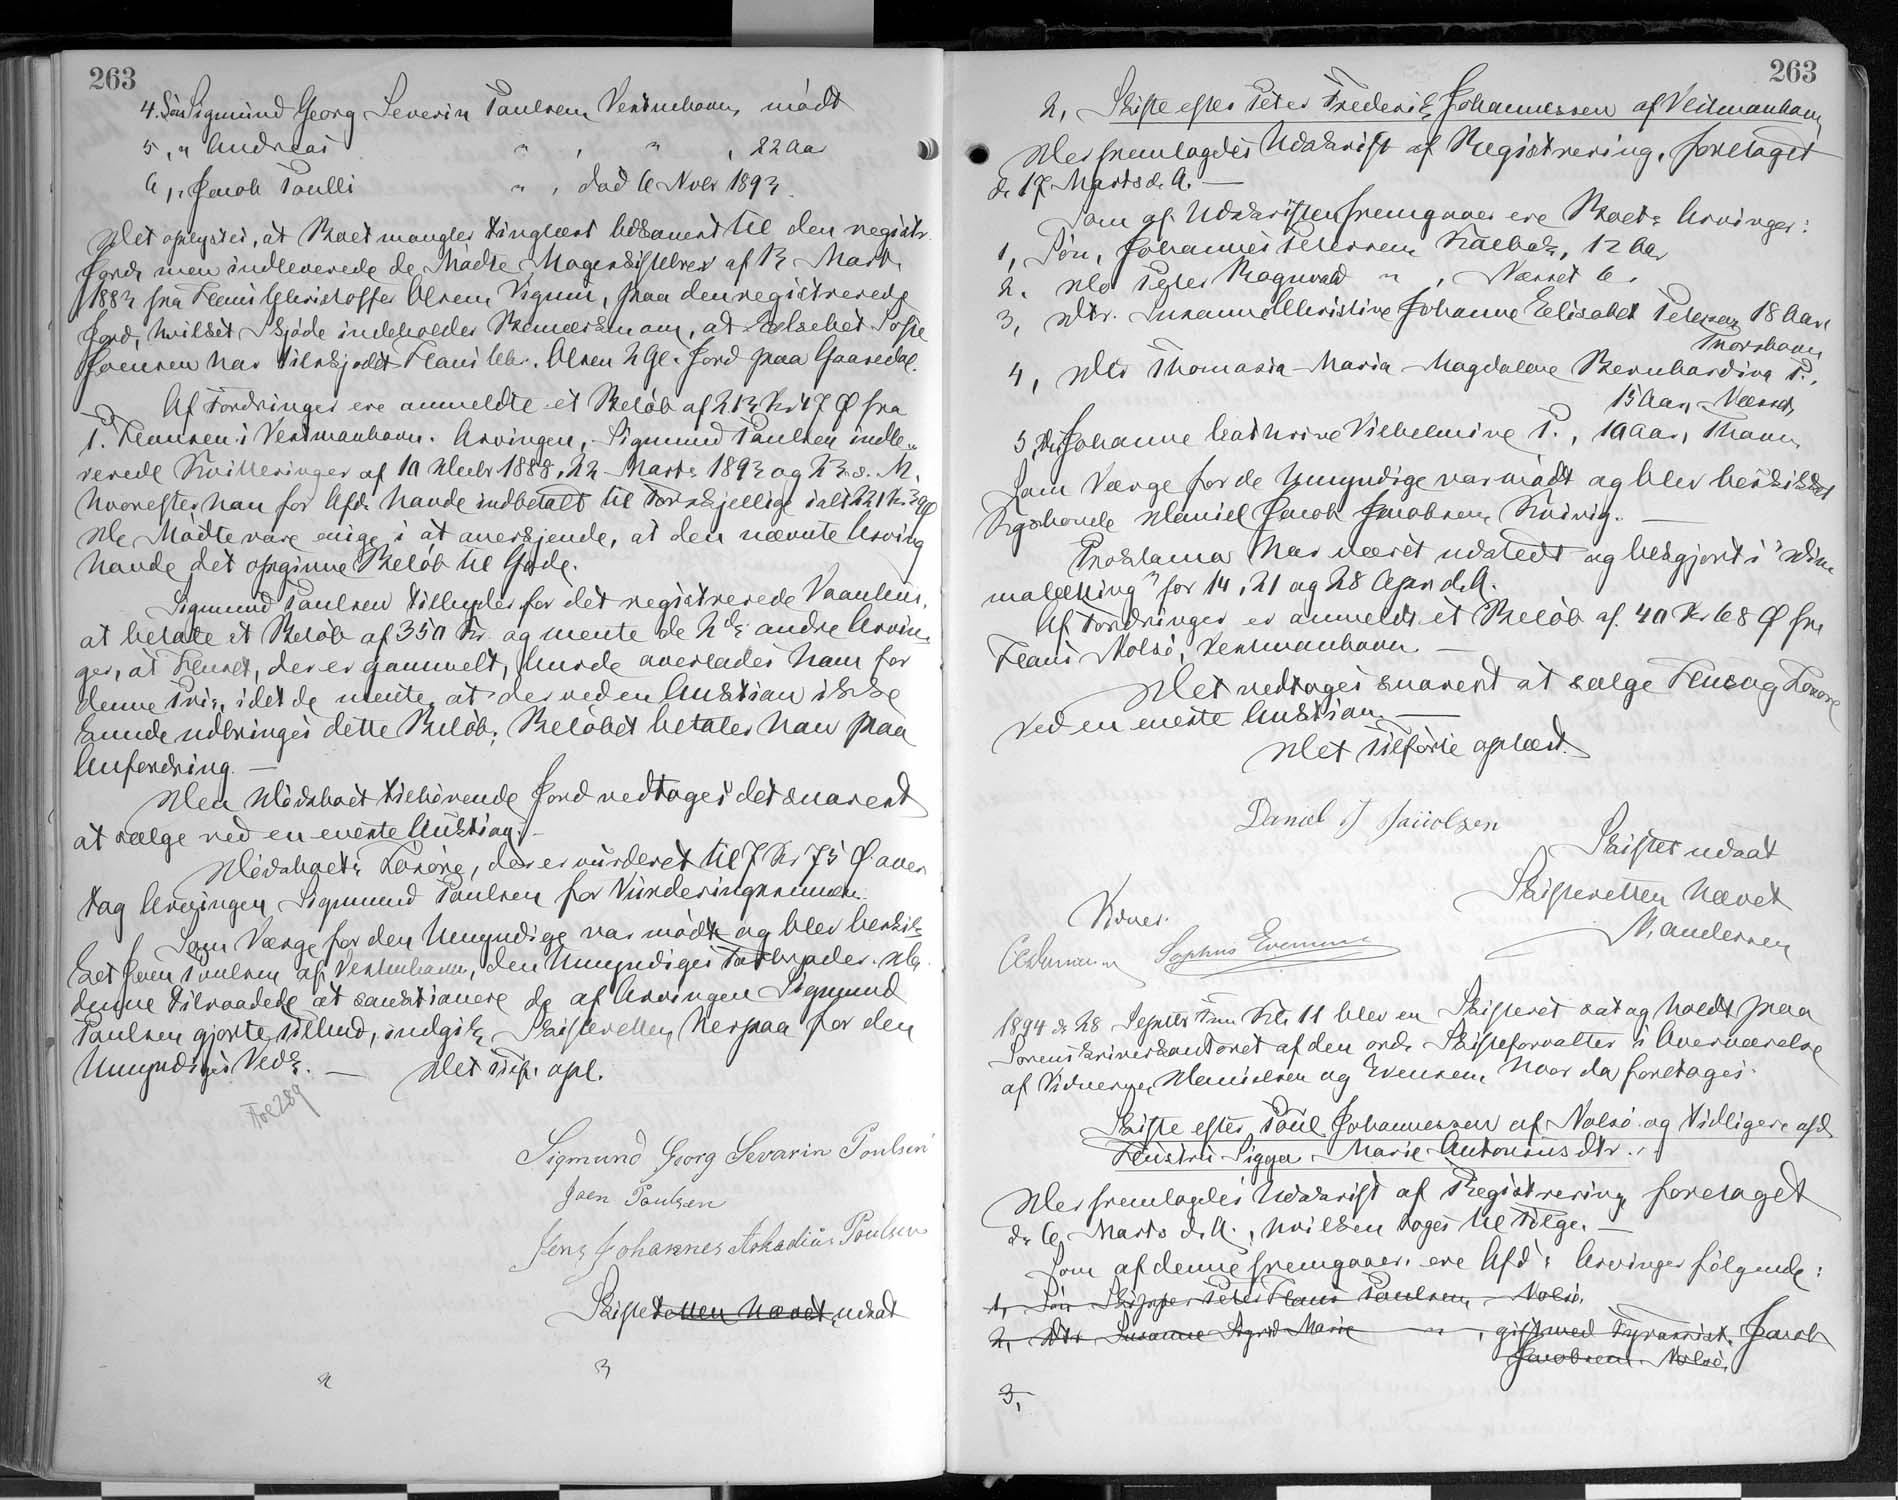 263
4. Sön Sigmund Georg Severin Paulsen, Vestmhavn, mödt
5, " Andreas " , " , 22 Aar
6, " Jacob Paulli " , död 6 Novbr 1893.
Det oplystes, at Boet mangler tinglæst Adkomst til den registr.
Jord, men indleverede de Mödte Magerskiftebrev af 13 Marts
1883 fra Hans Christoffer Olsen, Viguni, paa den registrerede
Jord, hvilket Skjöde indeholder Bemærkn om, at Elsebet Sofie
Joensen har tilskjödet Hans Chr. Olsen 2 Gl. Jord paa Gaasedal.
Af Fordringer ere anmeldte et Belöb af 213 Kr 47 Ø fra
P. Hansen i Vestmanhavn. Arvingen, Sigmund Paulsen indle-
verede Kvitteringer af 10 Decbr 1888, 22 Marts 1893 og 23 d. M.
hvorefter han for Afd. havde indbetalt til Forskjellige ialt 221 Kr 39 Ø
De Mödte vare enige i at anerkjende, at den nævnte Arving
havde det opgivne Belöb til Gode.
Sigmund Paulsen tilbyder for det registrerede Vaanhus,
at betale et Belöb af 350 Kr. og mente de 2de andre Arvin-
ger, at Huset, der er gammelt, burde overlades ham for
denne Pris, idet de mente, at der ved en Auktion ikke
kunde udbringes dette Belöb; Belöbet betales han paa
Anfordring. —
Den Dödsboet tilhörende Jord vedtoges det snarest
at sælge ved en eneste Auktion. —
Dödsboets Lösöre, der er vurderet til 7 Kr 75 Ø over
tog Arvingen Sigmund Paulsen for Vurderingssummen.
Som Værge for den Umyndige var mödt og blev beskik-
ket Joen Poulsen af Vestmhavn, den Umyndiges Farbroder. Da
denne tilraadede at sanktionere de af Arvingen Sigmund
Paulsen gjorte Tilbud, indgik Skifteretten herpaa for den
Umyndiges Vedk. — Det Tilf. opl.
Fol 289
Sigmund Georg Sevarin Poulsen
Joen Poulsen
Jens Johannes Arkadius Poulsen
Skiftet udsat
263
2, Skifte efter Peter Frederik Johannessen af Vestmanhavn
Der fremlagdes Udskrift af Registrering, foretaget
d. 17 Marts d. A. —
Som af Udskriften fremgaaer ere Boets Arvinger:
1, Sön, Johannes Petersen, Kalbak, 12 Aar
2. do Peter Rognvald " , Næsset 6.
3, Dtr. Susanne Christine Johanne Elisabet Petersen 18 Aar,
Thorshavn
4, do Thomasia Maria Magdalene Bernhardina P.,
15 Aar, Næsset,
5, do Johanne Cathrine Vilhelmine P., 10 Aar, Thavn,
Som Værge for de Umyndige var mödt og blev beskikket
Kgsbonde Daniel Jacob Jacobsen, Kvivig. —
Proklama har været udstedt og bekgjort i "Dim
malætting" for 14, 21 og 28 Apr d. A.
Af Fordringer er anmeldt et Belöb af 40 Kr 68 Ø fra
Hans Nolsö, Vestmanhavn —
Det vedtoges snarest at sælge Hus og Lösöre
ved en eneste Auktion. —
Det Tilförte oplæst.
Daniel J Jacobsen
Skiftet udsat
Skifteretten hævet
N. Andersen
Vidner.
Sophus Evensen
1894 d. 28 Septbr Fm Kl. 11 blev en Skifteret sat og holdt paa
Sorenskriverkontoret af den ord. Skifteforvalter i Overværelse
af Vidnerne, Danielsen og Evensen, hvor da foretoges:
Skifte efter Poul Johannessen af Nolsö og tidligere afd
Hustru Sigga Marie Antonius dtr.
Der fremlagdes Udskrift af Registrering, foretaget
d. 6 Marts d. A., hvilken toges til Fölge. —
Som af denne fremgaaer, ere Afd's Arvinger fölgende:
1, Sön Skipper Peter Hans Paulsen, Nolsö.
2, Dtr Susanne Sigrid Marie " , gift med Jacob
Jacobsen, Nolsö,
3,